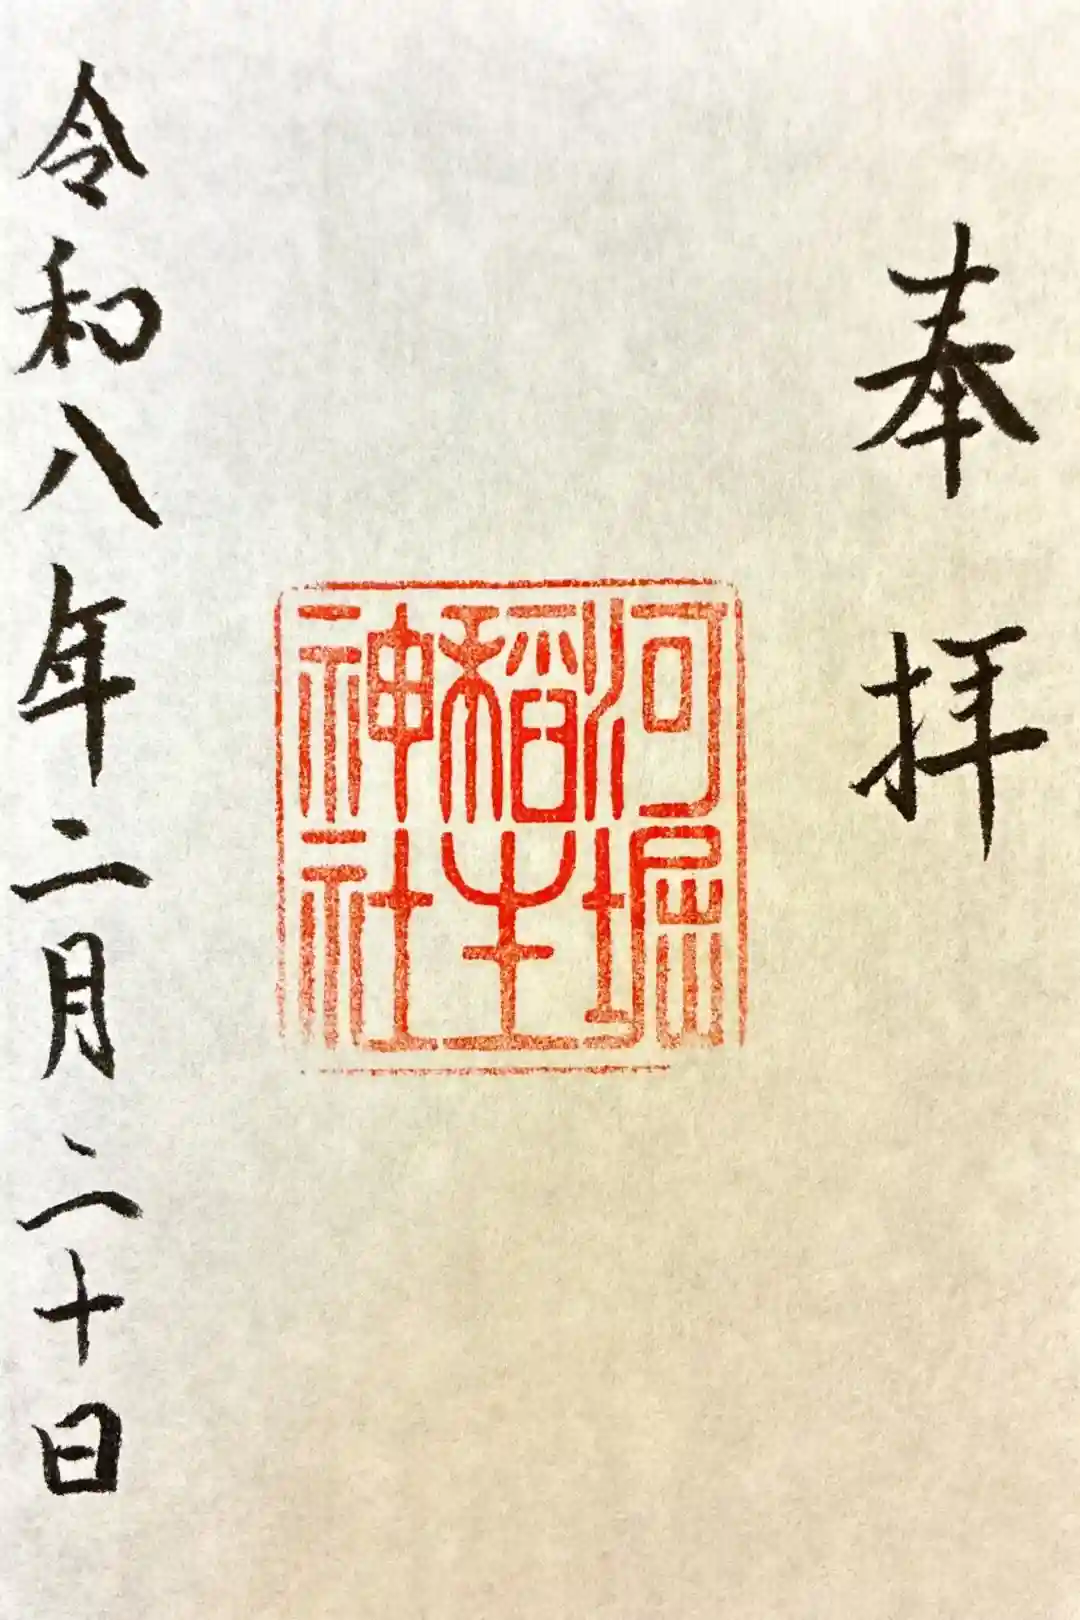 奉拝
河堀
稲生
神社
令和八年二月二十日